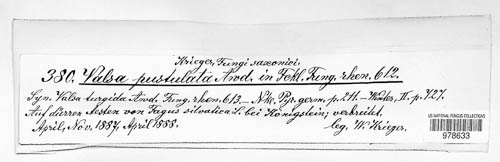 Krieger, Fungi saxonici.
380. Valsa pustulata Awd. in Fckl. Fung. rhen. 612.
Syn. Valsa turgida Awd. Fung. rhen. 613. – Ntk. Pyr. germ. p. 211. – Winter, II. p. 727.
Auf dürren Aesten von Fagus silvatica L. bei Königstein; verbreitet.
April, Nov. 1887, April 1888. leg. W. Krieger.
US NATIONAL FUNGUS COLLECTIONS
978633